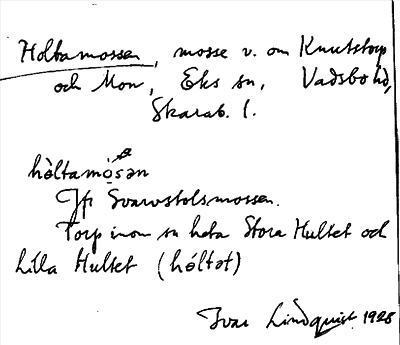 Holtamossen, mosse v. om Knutstorp
och Mon, Eks sn, Vadsbo hd,
Skarab. l.
hòltamósən
Jfr Svarvstolsmossen.
Torp inom sn heta Stora Hultet och
Lilla Hultet (hóltət)
Ivar Lindquist 1928